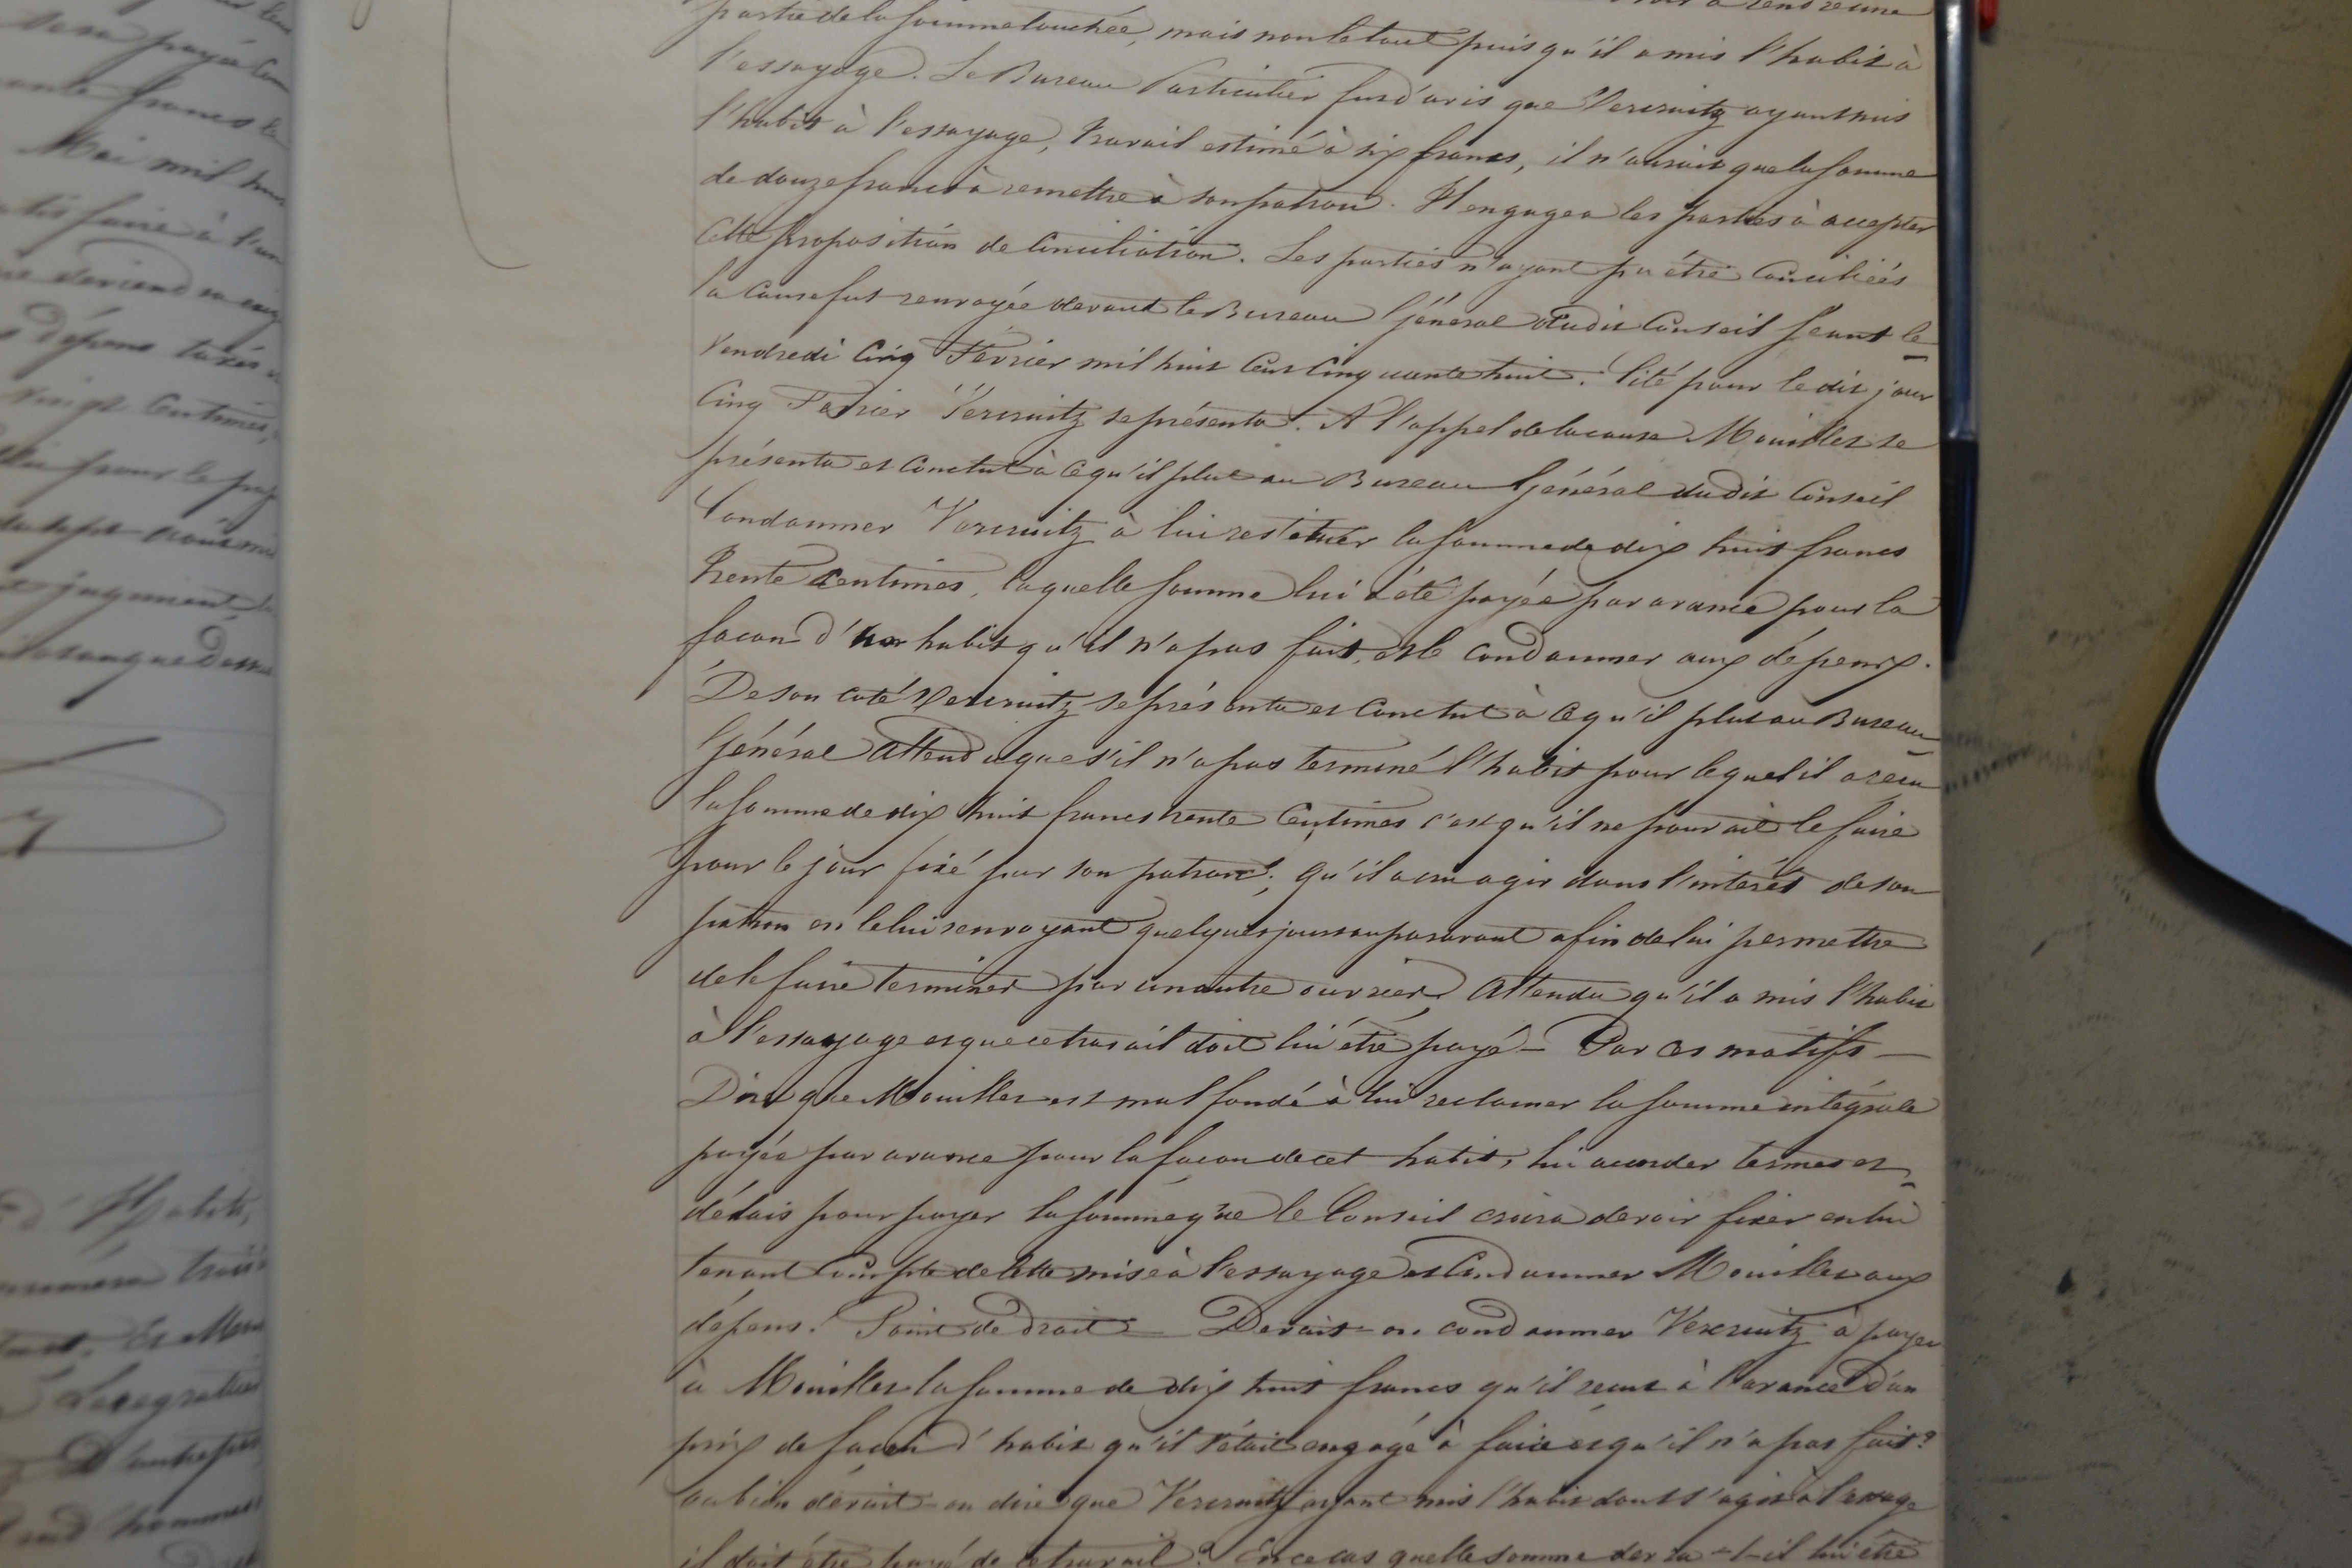 sera payée
francs
Mai mil huit
à l'un
dépens taxés
vingt centimes,
pour le
jugement
que dessus
partie de la somme touchée, mais non le tout puisqu'il a mis l'habit à
l'essayage. Le Bureau Particulier fut d'avis que Vercruitz ayant mis
l'habit à l'essayage, travail estimé à six francs, il n'aurait que la somme
de douze francs à remettre à son patron. Il engagea les parties à accepter
cette proposition de Conciliation. Les parties n'ayant pu être Conciliées
la Cause fut renvoyée devant le Bureau Général dudit Conseil séant le
Vendredi Cinq Février mil huit Cent Cinquante huit. Cité pour le dit jour
Cinq Février Vercruitz se présenta. A l'appel de la cause Mouillet se
présenta et Conclut à ce qu'il plut au Bureau Général dudit Conseil
Condamner Vercruitz à lui restituer la somme de dix huit francs
trente Centimes, laquelle somme lui a été payée par avance pour la
facon d'un habit qu'il n'a pas fait, et le condamner aux dépens.
De son coté Vercruitz se présenta et Conclut à ce qu'il plut au Bureau
Général attendu que s'il n'a pas terminé l'habit pour lequel il a recu
la somme de dix huit francs trente Centimes c'est qu'il ne pouvait le faire
pour le jour fixé par son patron; qu'il a cru agir dans l'intérêt de son
patron en le lui renvoyant quelques jours auparavant afin de lui permettre
de le faire terminer par un autre ouvrier. Attendu qu'il a mis l'habit
à l'essayage et que ce travail doit lui être payé — Par ces motifs —
Dire que Mouillet est mal fondé à lui reclamer la somme intégrale
payée par avance pour la facon de cet habit, lui accorder termes et
délais pour payer la somme que le Conseil croira devoir fixer en lui
tenant Compte de cette mise à l'essayage et Condamner Mouillet aux
dépens. Point de droit — Devait-on condamner Vercruitz à payer
à Mouillet la somme de dix huit francs qu'il recut à l'avance d'un
prix de facon d'habit qu'il s'était engagé à faire et qu'il n'a pas fait?
ou bien devait-on dire que Vercruitz ayant mis l'habit dont s'agit à l'essayage
il doit être payé de ce travail? En ce cas quelle somme devra-t-il lui être